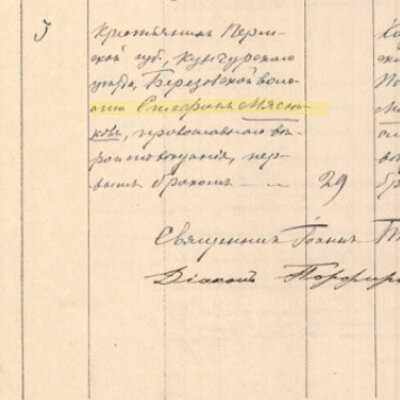 3 Крестьянинъ Перм-
ской губ., Кунгурскаго
уезда, Березовской воло-
сти Стефанъ Мясни-
ковъ, православнаго ве-
роисповедания, пер-
вымъ бракомъ 29
Священникъ Іоаннъ
Діаконъ Порфир